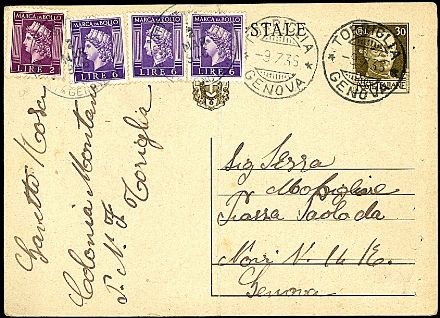 MARCA DA BOLLO
LIRE 2
MARCA DA BOLLO
LIRE 6
MARCA DA BOLLO
LIRE 6
MARCA DA BOLLO
LIRE 6
STALE
GENOVA
TORIGLIA
GENOVA
30
Sig Serra
Piazza Paolo da
Novi N. 14 R.
Genova
Zanetta Rosa
Colonia Montana
P. N. F. Torriglia